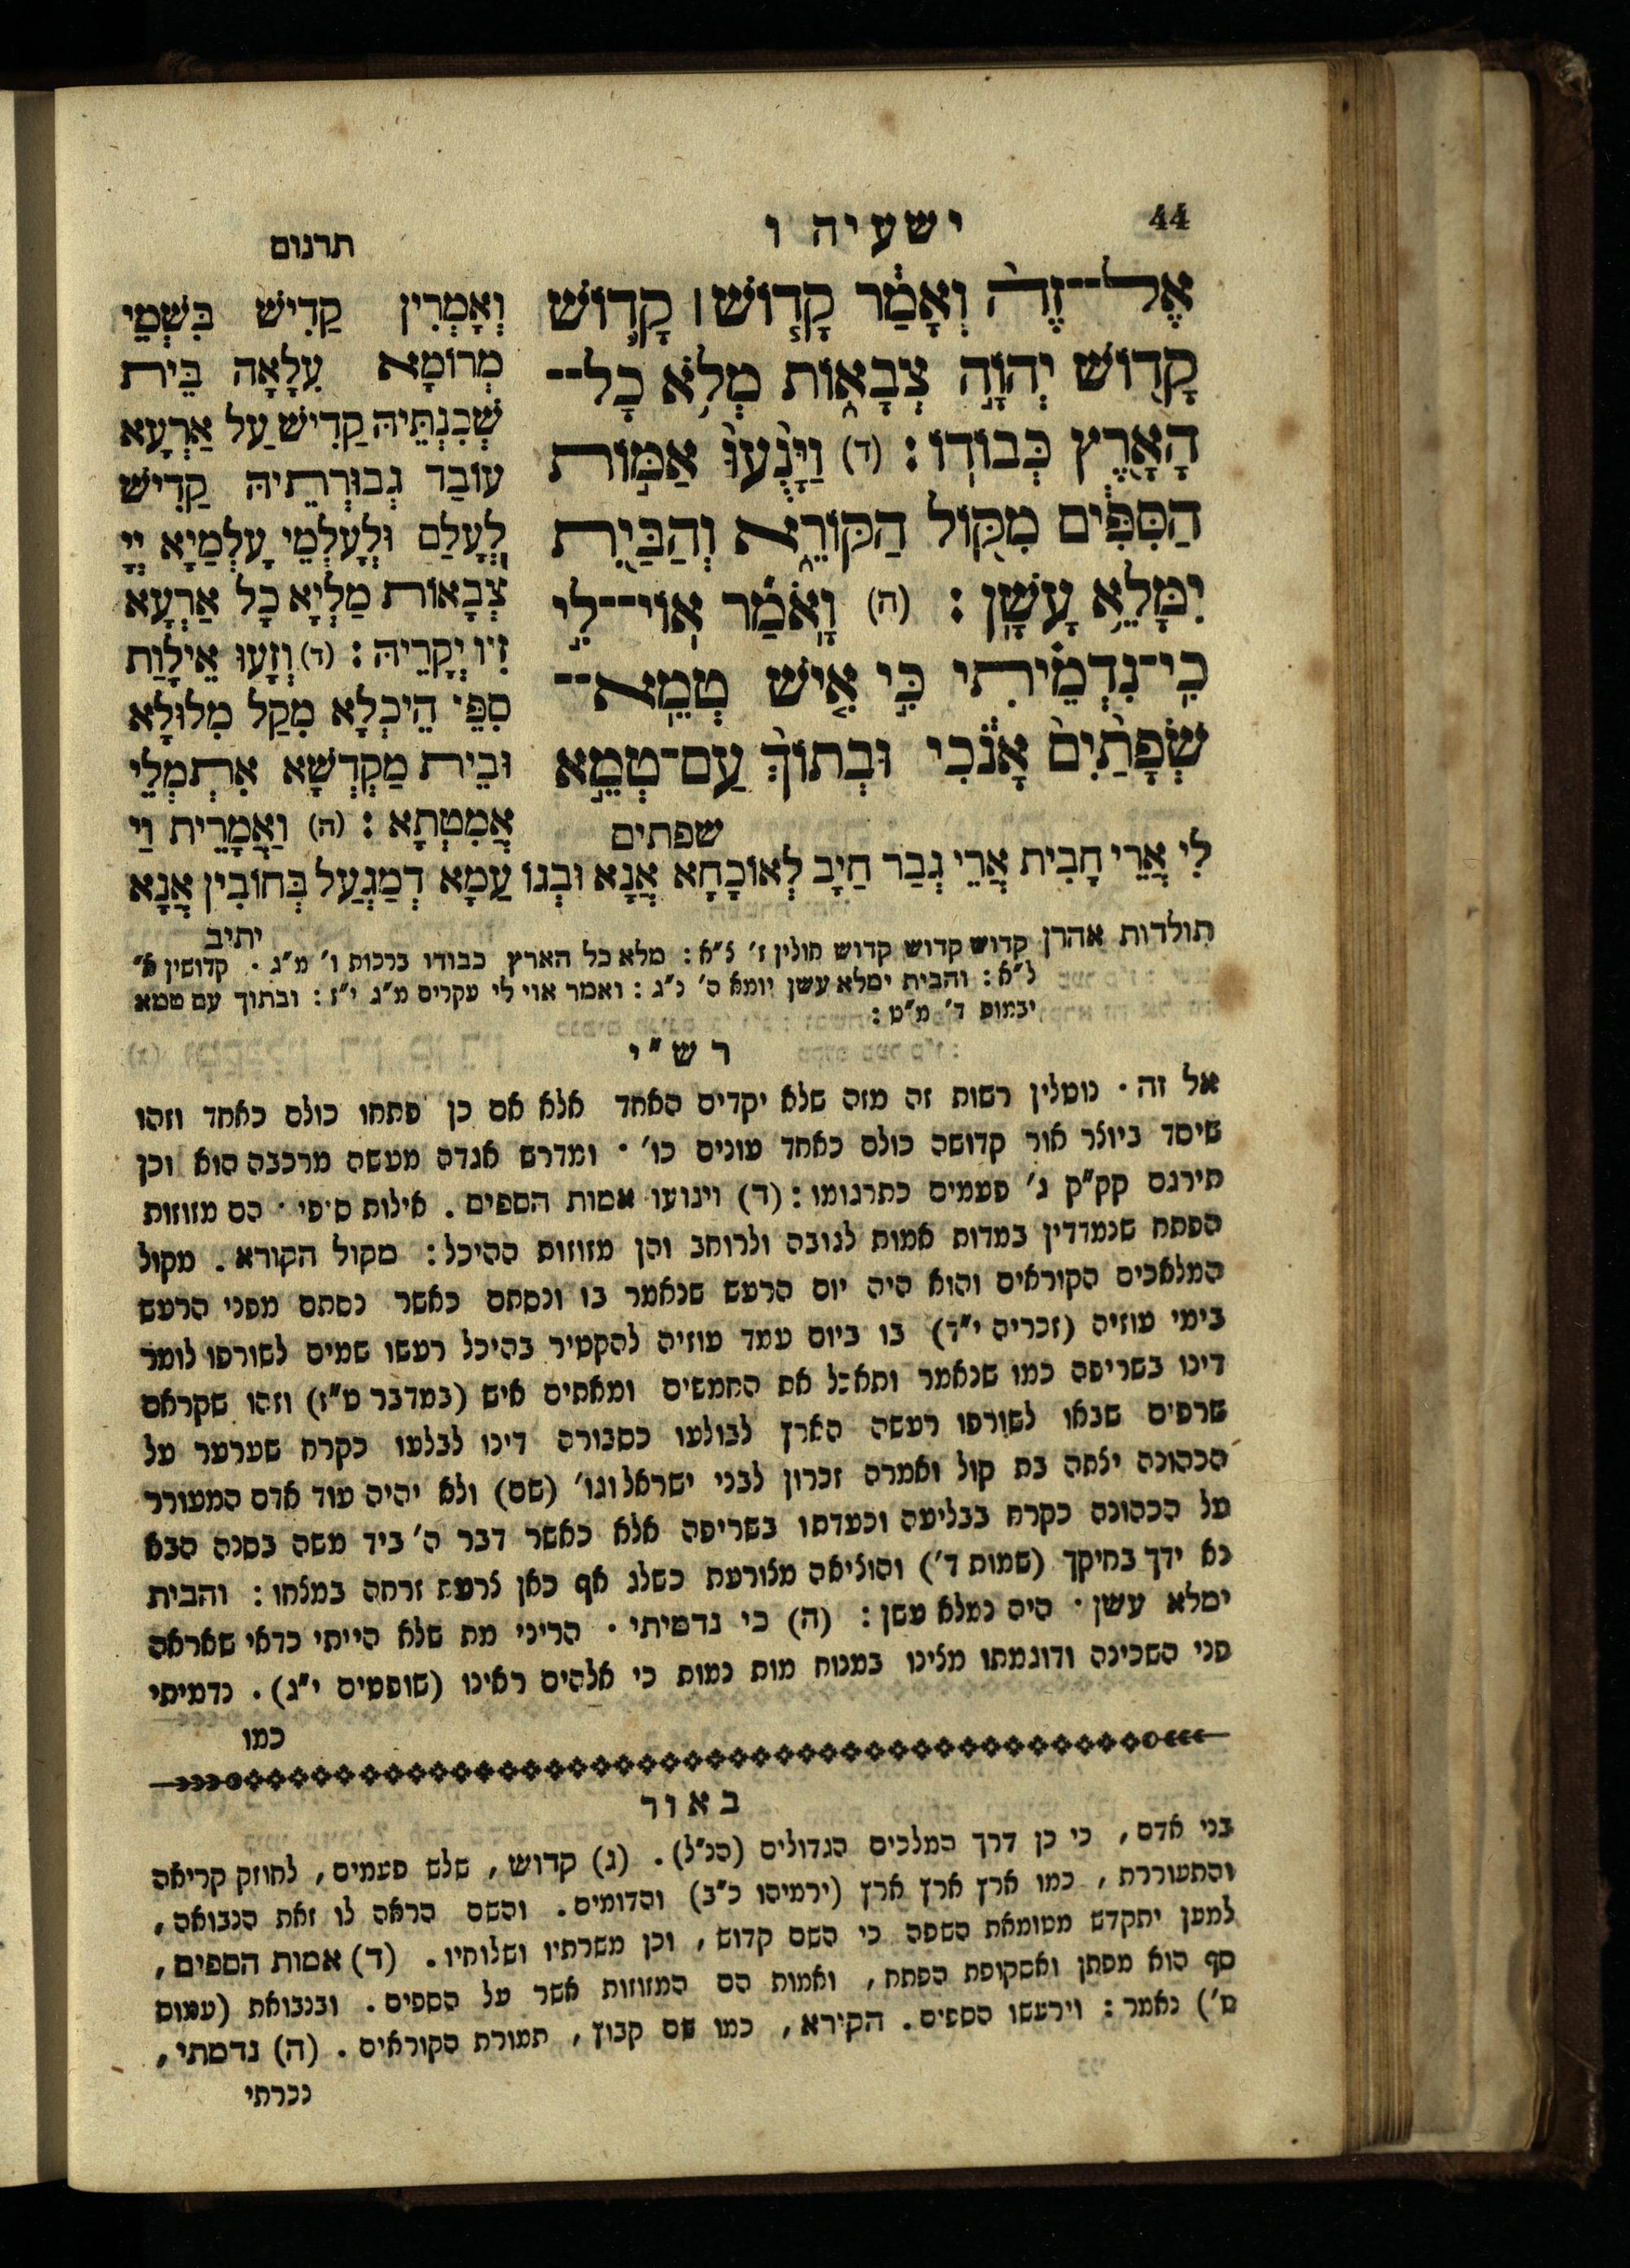 44
ישעיה ו
תרגום
אֶל־־זֶה֙ וְאָמַ֔ר קָד֧וֹשׁ ׀ קָד֛וֹשׁ
קָד֖וֹשׁ יְהוָ֣ה צְבָא֑וֹת מְלֹ֥א כָל־־
הָאָ֖רֶץ כְּבוֹדֽוֹ : (ד) וַיָּנֻ֙עוּ֙ אַמּ֣וֹת
הַסִּפִּ֔ים מִקּ֖וֹל הַקּוֹרֵ֑א וְהַבַּ֖יִת
יִמָּלֵ֥א עָשָֽׁן : (ה) וָאֹמַ֞ר אֽוֹי־־לִ֣י
כִֽי־נִדְמֵ֗יתִי כִּ֣י אִ֤ישׁ טְמֵֽא־־
שְׂפָתַ֙יִם֙ אָנֹ֔כִי וּבְתוֹךְ֙ עַם־טְמֵ֣א
שפתים
וְאָמְרִין קַדִישׁ בִּשְׁמֵי
מְרוֹמָא עִלָאָה בֵּית
שְׁכִנְתֵּיהּ קַדִישׁ עַל אַרְעָא
עוֹבַד גְבוּרְתֵיהּ קַדִישׁ
לְעָלַם וּלְעָלְמֵי עָלְמַיָא יְיָ
צְבָאוֹת מַלְיָא כָל אַרְעָא
זִיו יְקָרֵיהּ : (ד) וְזָעוּ אֵילָוַת
סִפֵּי הֵיכְלָא מִקַל מִלוּלָא
וּבֵית מַקְדְשָׁא אִתְמְלֵי
אֲמִטְתָא : (ה) וַאֲמָרֵית וַי
לִי אֲרֵי חָבִית אֲרֵי גְבַר חַיָב לְאוֹכָחָא אֲנָא וּבְגוֹ עַמָא דְמַגְעַל בְּחוֹבִין אֲנָא
יתיב
תולדות אהרן קדוש קדוש קדוש חולין ז' צ"א : מלא כל הארץ כבודו ברכות ו' מ"ג . קדושין א"
ל"א : והבית ימלא עשן יומא ה' נ"ג : ואמר אוי לי עקרים מ"ג י"ז : ובתוך עם טמא
יבמות ד' מ"ט :
רש"י
אל זה . נוטלין רשות זה מזה שלא יקדים האחד אלא אם כן פתחו כולם כאחד וזהו
שיסד ביוצר אור קדושה כולם כאחד עונים כו' . ומדרש אגדה מעשה מרכבה הוא וכן
תירגם קק"ק ג' פעמים כתרגומו : (ד) וינועו אמות הספים . אילות סיפי . הם מזוזות
הפתח שנמדדין במדות אמות לגובה ולרוחב והן מזוזות ההיכל : מקול הקורא . מקול
המלאכים הקוראים והוא היה יום הרעש שנאמר בו ונסתם כאשר נסתם מפני הרעש
בימי עוזיה (זכריה י"ד) בו ביום עמד עוזיה להקטיר בהיכל רעשו שמים לשורפו לומר
דינו בשריפה כמו שנאמר ותאכל את החמשים ומאתים איש (במדבר ט"ז) וזהו שקראם
שרפים שבאו לשורפו רעשה הארץ לבולעו כסבורה דינו לבלעו כקרח שערער על
הכהונה יצתה בת קול ואמרה זכרון לבני ישראל וגו' (שם) ולא יהיה עוד אדם המעורר
על הכהונה כקרח בבליעה וכעדתו בשריפה אלא כאשר דבר ה' ביד משה בסנה הבא
נא ידך בחיקך (שמות ד') והוציאה מצורעת כשלג אף כאן צרעת זרחה במצחו : והבית
ימלא עשן . היה נמלא עשן : (ה) כי נדמיתי . הריני מת שלא הייתי כדאי שאראה
פני השכינה ודוגמתו מצינו במנוח מות נמות כי אלהים ראינו (שופטים י"ג) . נדמיתי
כמו
באור
בני אדם , כי כן דרך המלכים הגדולים (הנ"ל) . (ג) קדוש , שלש פעמים , לחוזק קריאה
והתעוררת , כמו ארץ ארץ ארץ (ירמיהו כ"ב) והדומים . והשם הראה לו זאת הנבואה ,
למען יתקדש מטומאת השפה כי השם קדוש , וכן משרתיו ושלוחיו . (ד) אמות הספים ,
סף הוא מפתן ואסקופת הפתח , ואמות הם המזוזות אשר על הספים . ובנבואת (עמוס
ט') נאמר : וירעשו הספים . הקירא , כמו שם קבוץ , תמורת הקוראים . (ה) נדמתי ,
נכרתי